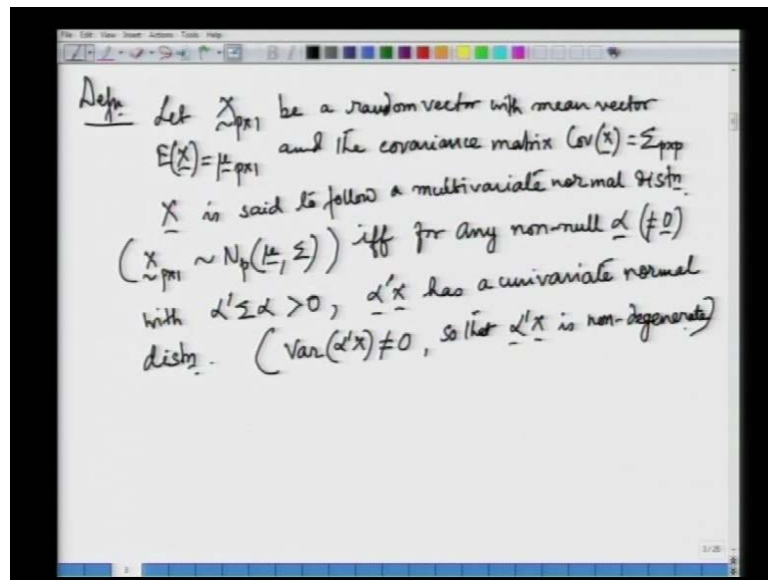 File Edit View Insert Actions Tools Help
Defn. Let X̰ p×1 be a random vector with mean vector
E(X) = μ p×1 and the covariance matrix Cov(X) = Σ p×p
X is said to follow a multivariate normal distn.
(X̰ p×1 ~ N_p(μ, Σ)) iff for any non-null α (≠ 0)
with α'Σα > 0, α'X has a univariate normal
distn. (Var(α'X) ≠ 0, so that α'X is non-degenerate)
3/25
3